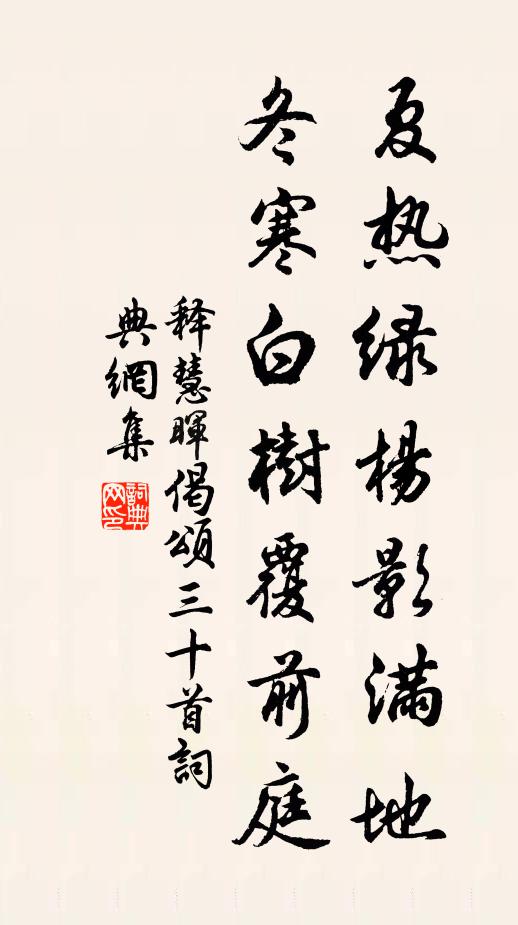 夏热绿楊影滿地
冬寒白樹覆前庭
释慧暉偈頌三十首詞
典網集
詞典网印